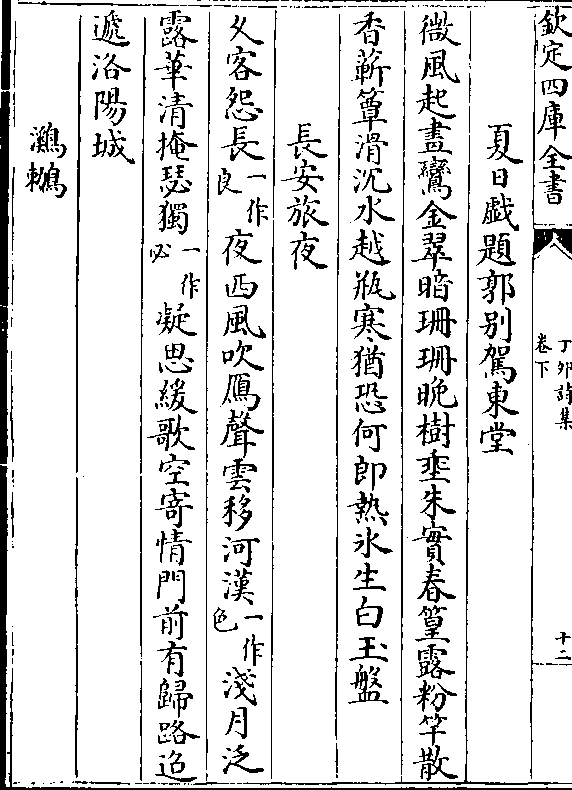 欽定四庫全書
丁卯詩集
卷下
十二
夏日戲題郭别駕東堂
微風起畫鸞金翠暗珊珊晚樹垂朱實春篁露粉竿散
香蘄簟滑沉水越瓶寒猶恐何郎熱氷生白玉盤
長安旅夜
久客怨長一作良夜西風吹鴈聲雲移河漢一作色淺月泛
露華清掩瑟獨一作必凝思緩歌空寄情門前有歸路迢
遞洛陽城
鸂鶒